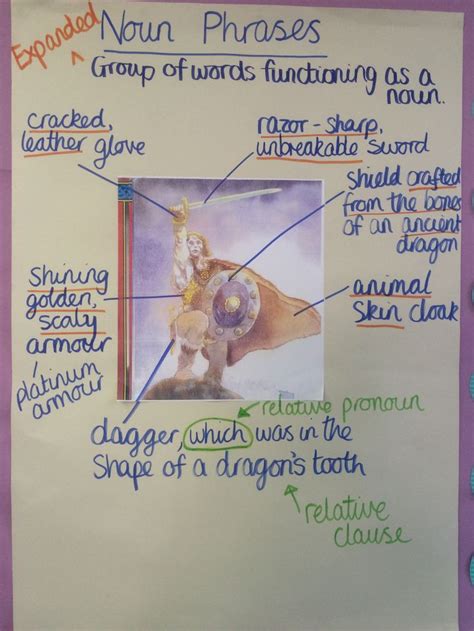 Expanded
^
Noun Phrases
Group of words functioning as a
noun.
cracked,
leather glove
razor-sharp,
unbreakable sword
shield crafted
from the bones
of an ancient
dragon
Shining
golden,
scaly
armour
platinum
armour
animal
skin cloak
relative pronoun
dagger, which was in the
shape of a dragon's tooth
relative
clause